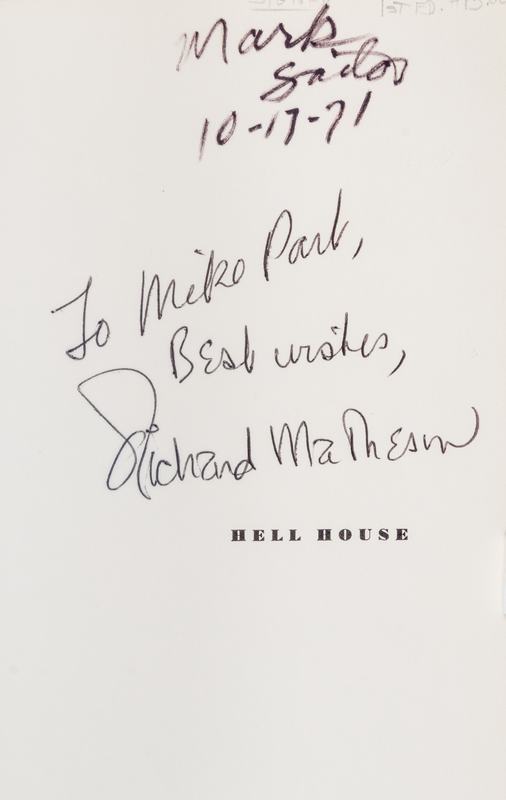 1st ED.
Mark
10-17-71
To Mike Park,
Best wishes,
Richard Matheson
HELL HOUSE